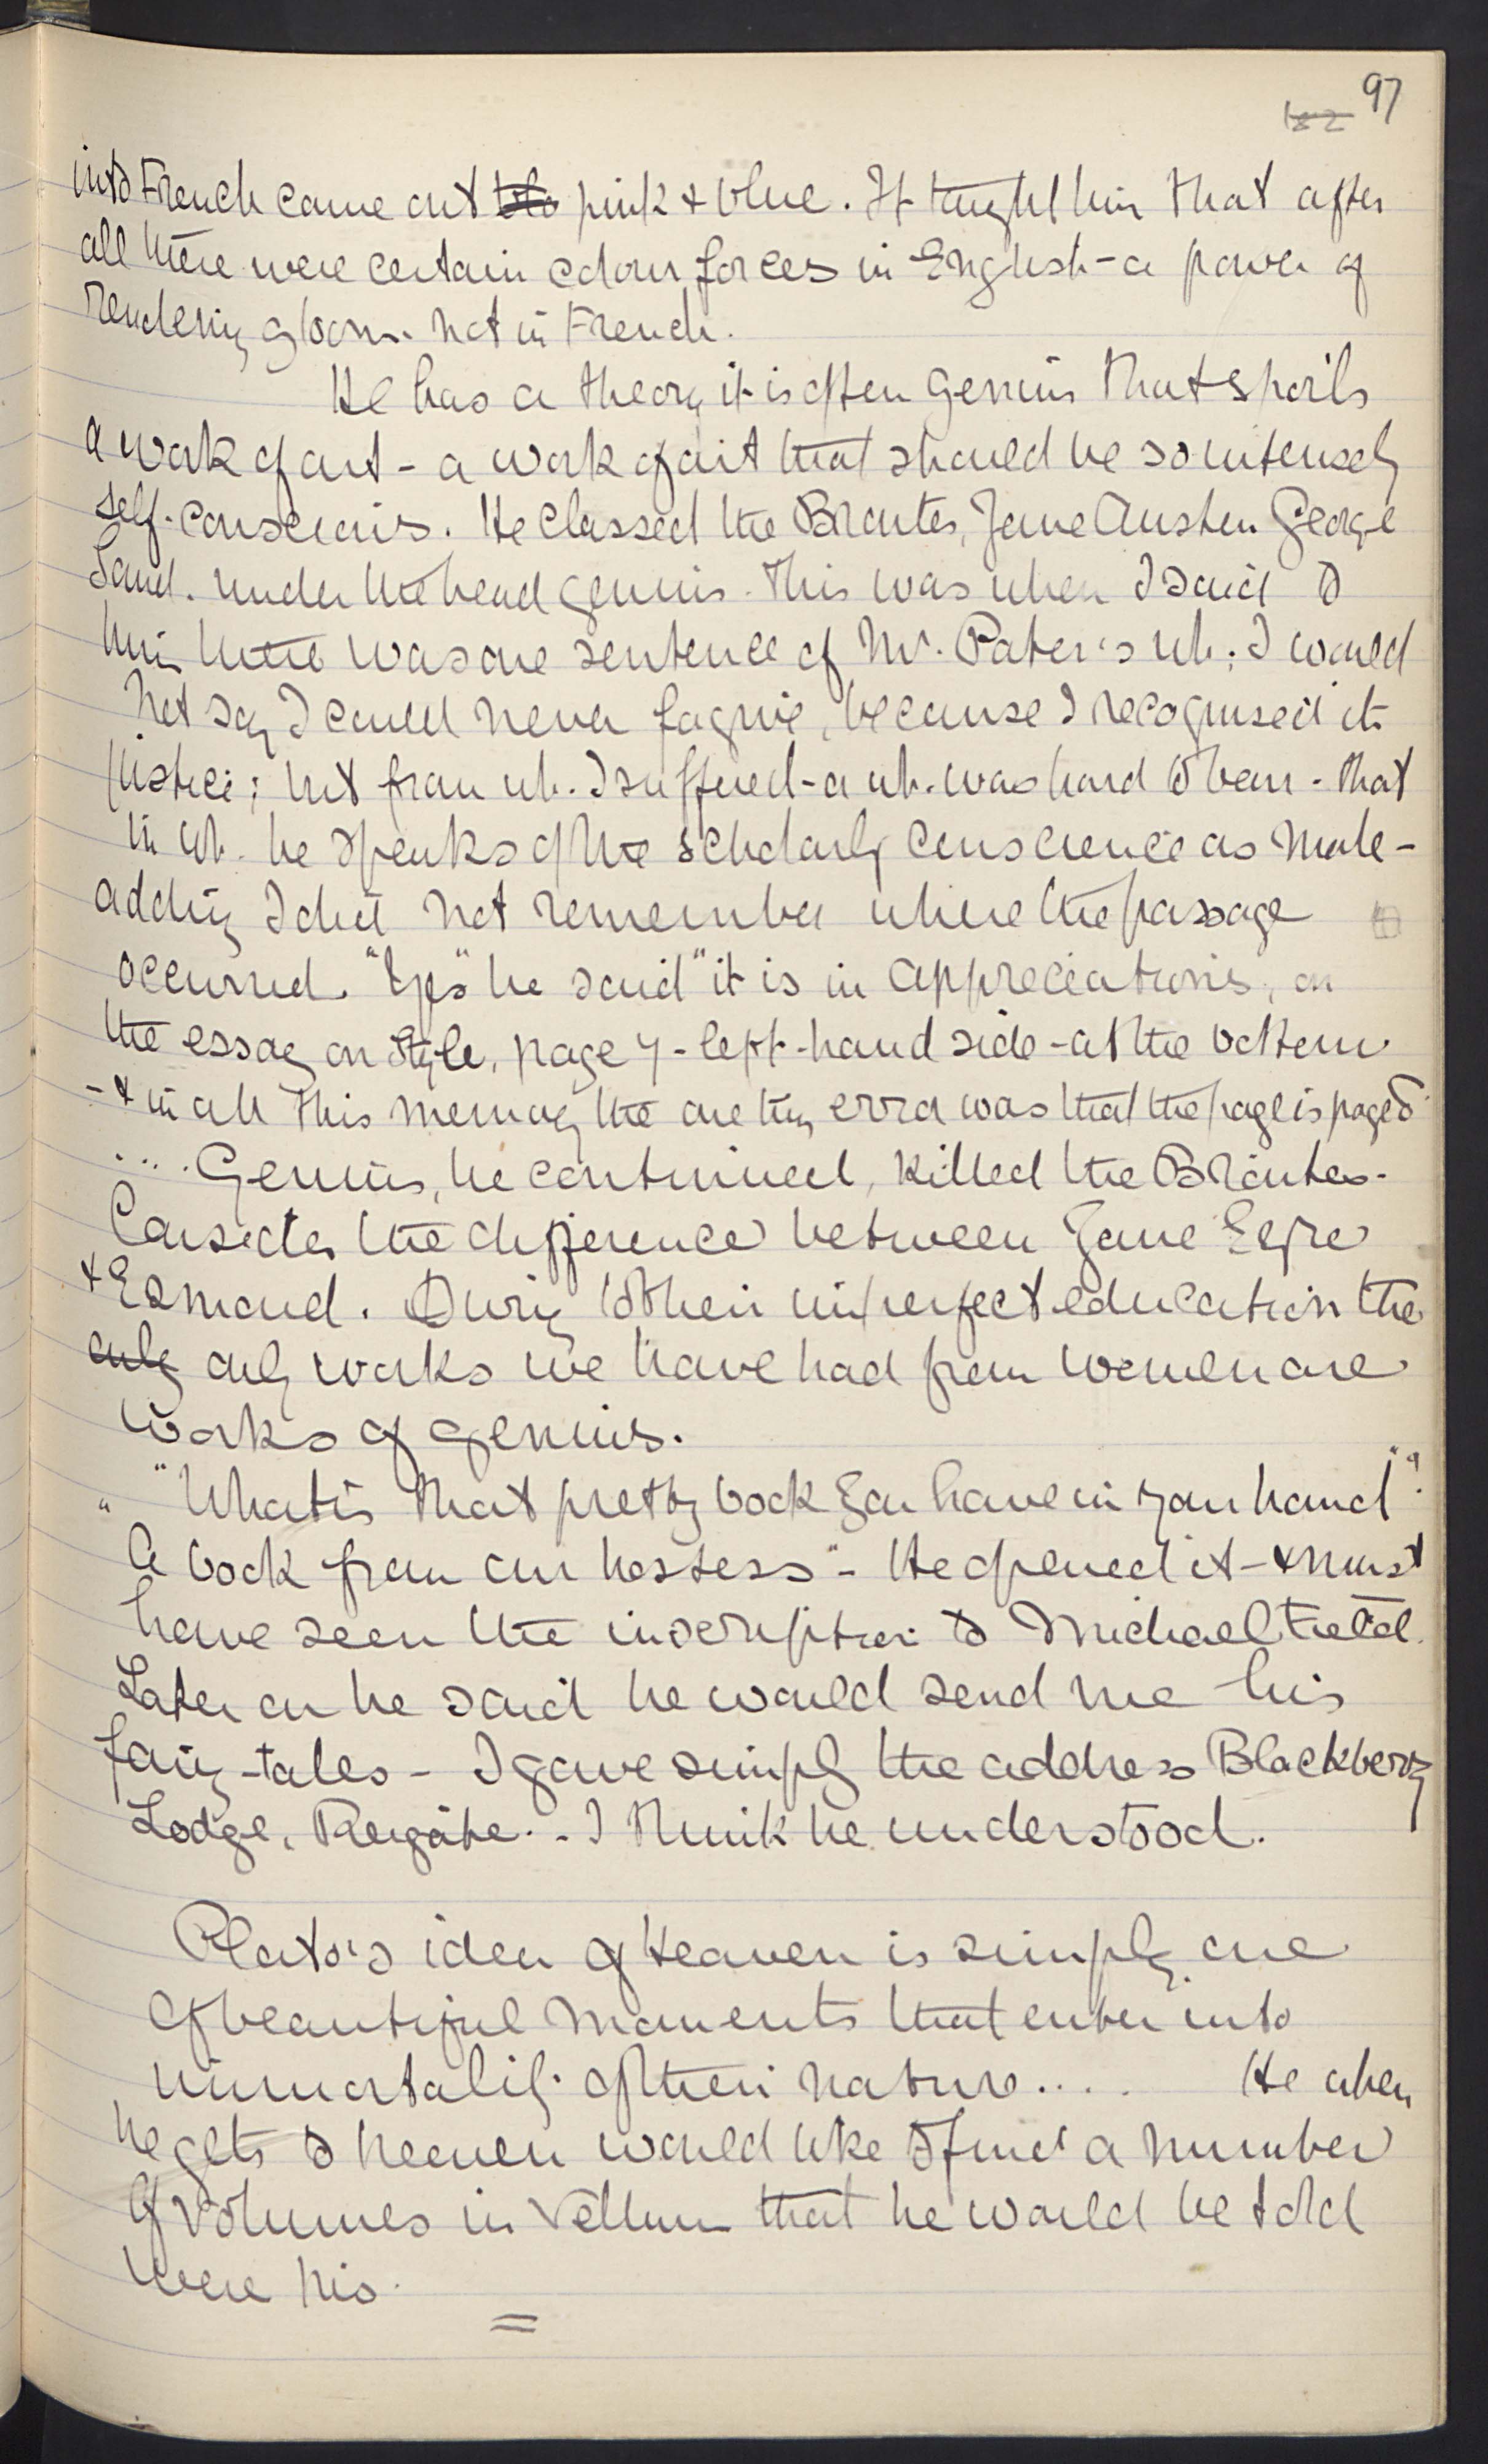 97
182
into French came out blo pink & blue. It taught him that after
all there were certain colour forces in English - a power of
rendering gloom not in French.
He has a theory it is often genius that spoils
a work of art - a work of art that should be so intensely
self-conscious. He classed the Brontes, Jane Austen George
Sand. under the head genius. This was when I said to
him there was one sentence of Mr. Pater's wh. I would
not say I could never forgive, because I recognised its
justice; but from wh. I suffered - a wh. was hard to bear - that
in wh. he speaks of the scholarly conscience as male -
adding I did not remember where the passage
occurred. "Yes" he said "it is in Appreciations, on
the essay on Style, page 7 - left-hand side - at the bottom
- & in all this memory the one tiny error was that the page is page 8
.... Genius, he continued, killed the Brontes.
Consider the difference between Jane Eyre
& Esmond. Owing to their imperfect education the
only only works we have had from women are
works of genius.
"What is that pretty book you have in your hand"?
"A book from our hostess" - He opened it - & must
have seen the inscription to Michael Field.
Later on he said he would send me his
fairy-tales - I gave simply the address Blackberry
Lodge, Reigate. - I think he understood.
Plato's idea of Heaven is simply one
of beautiful moments that enter into
immortality of their nature.... He when
he gets to heaven would like to find a number
of volumes in vellum that he would be told
were his.